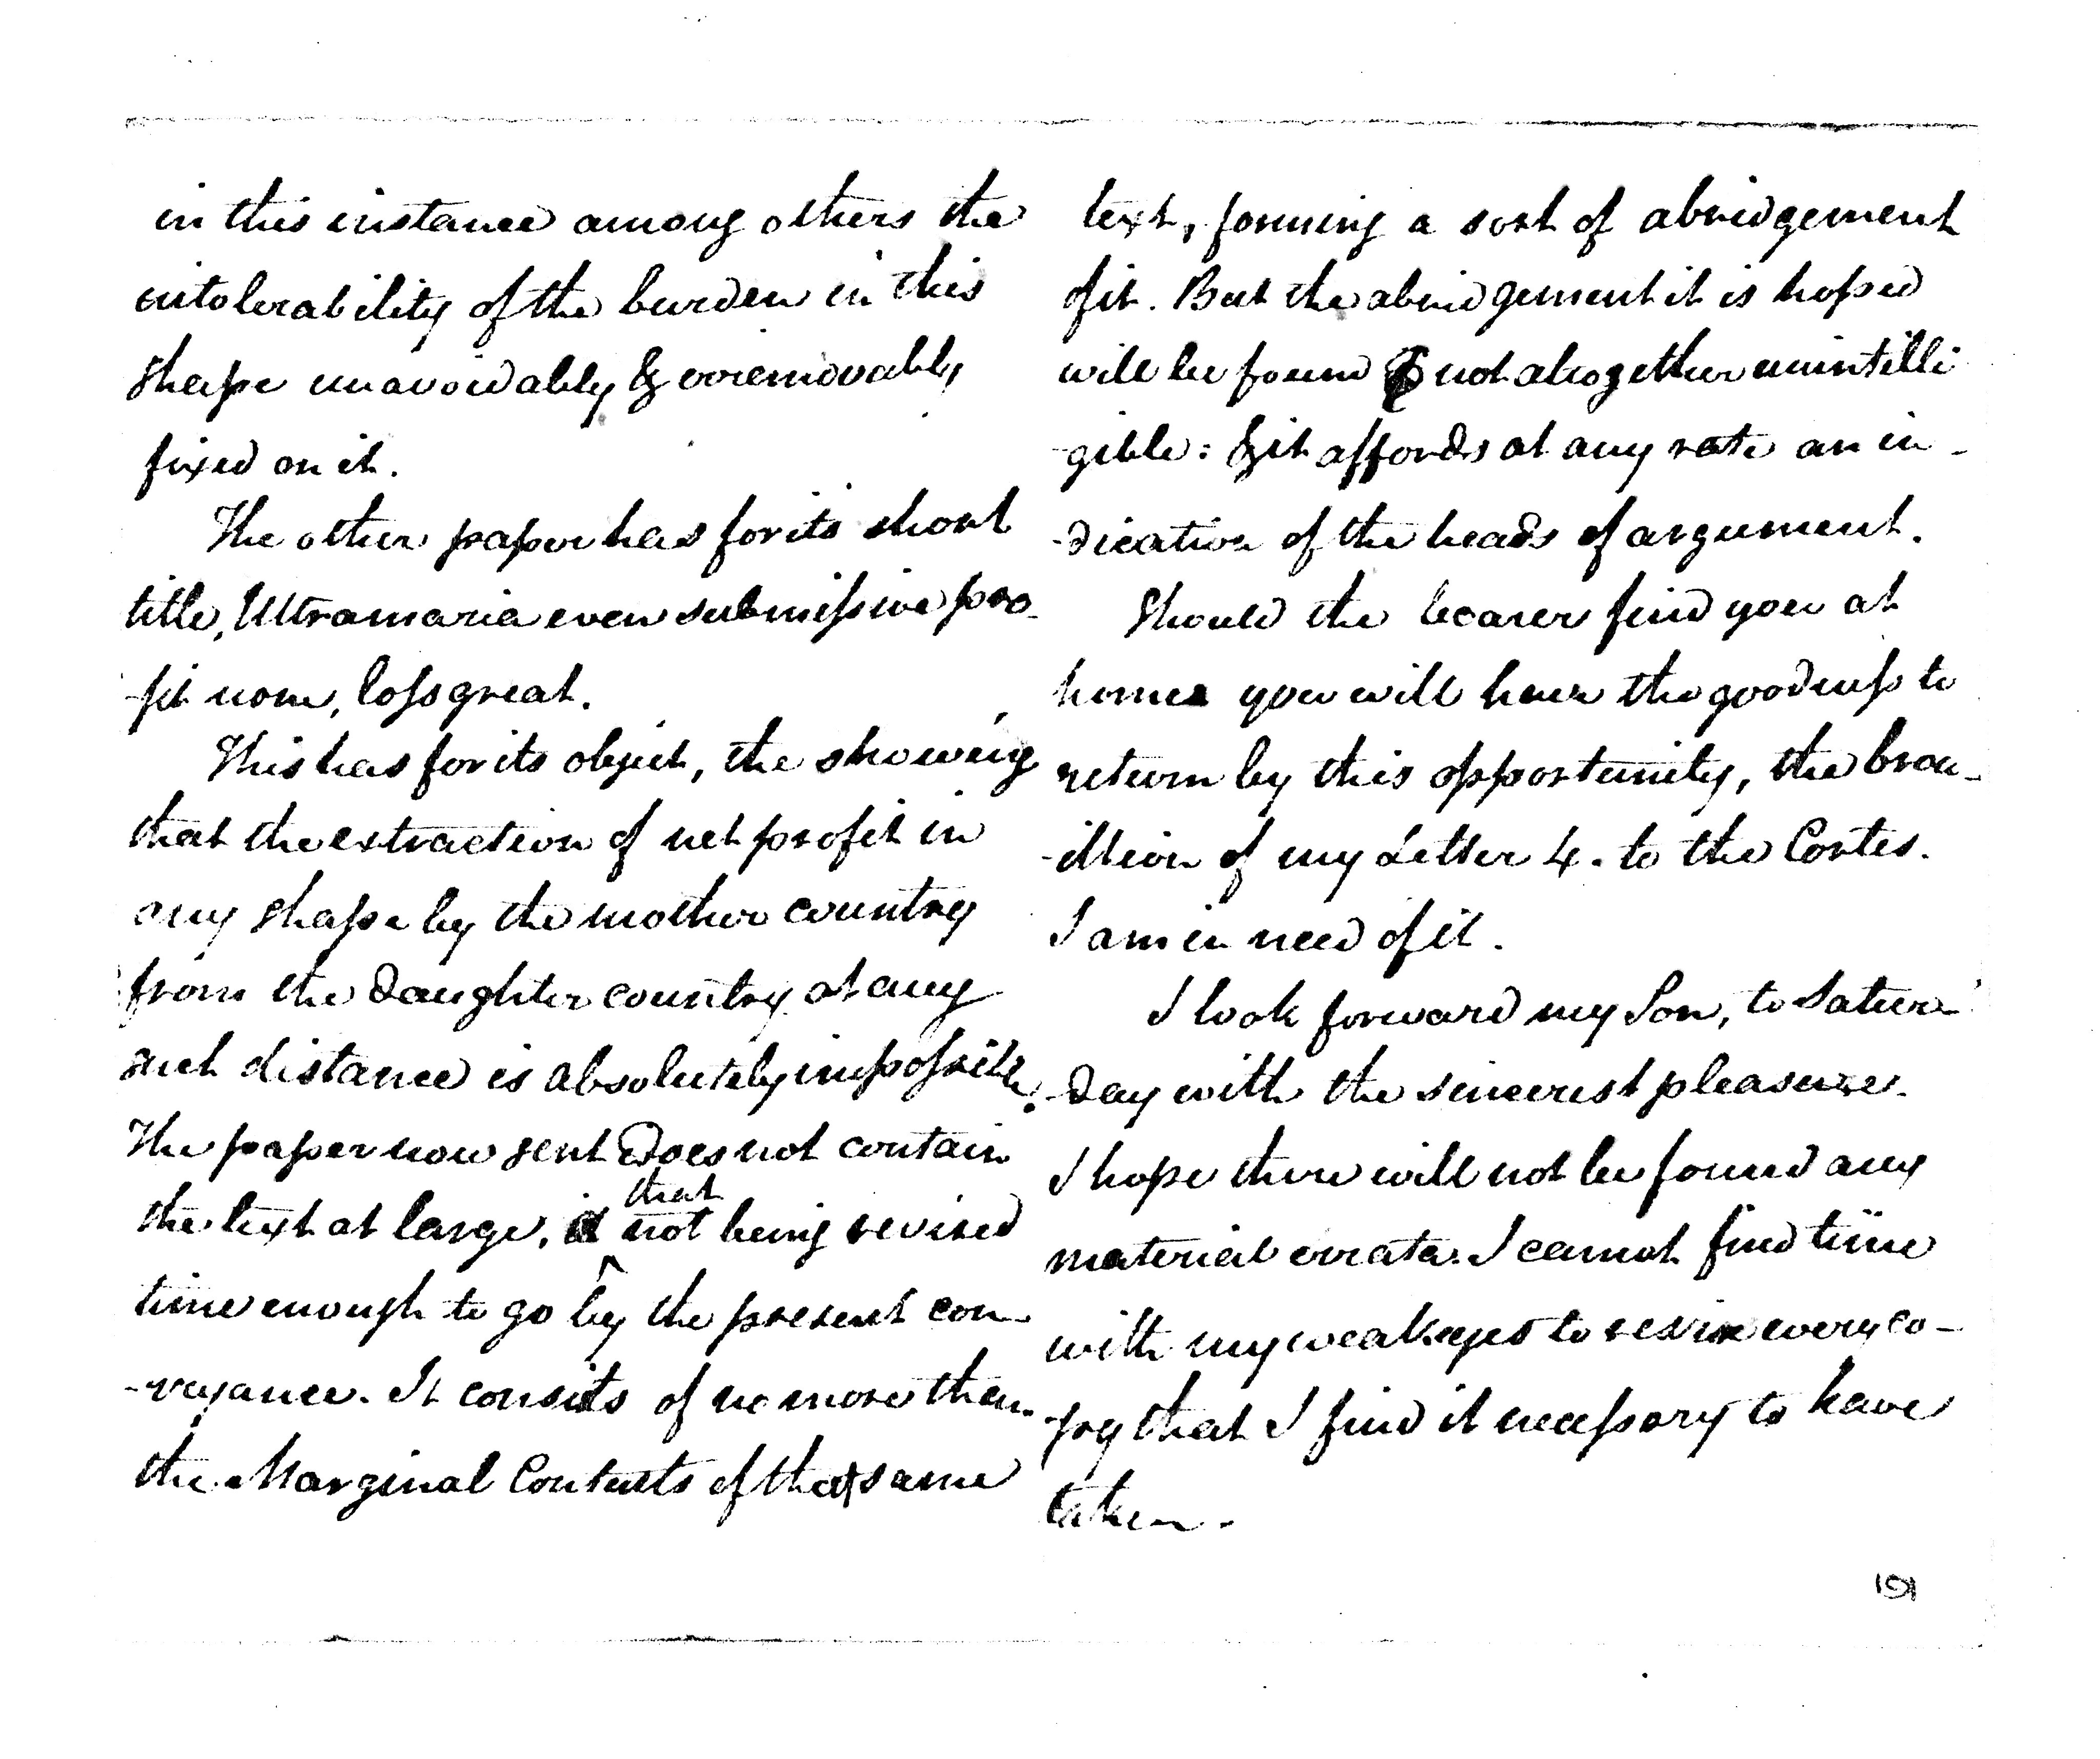 in this instance among others the
intolerability of the burden in this
shape unavoidably & irremovably
fixed on it.
The other paper has for its short
title, Ultramaria even submissive pro-
-fit none, loss great.
This has for its object, the showing
that the extraction of net profit in
any shape by the mother country
from the daughter country at any
such distance is absolutely impossible.
The paper now sent does not contain
that
the text at large, not being revised
time enough to go by the present con-
-veyance. It consists of no more than
the Marginal Contents of that same
text, forming a sort of abridgement
of it. But the abridgement it is hoped
will be found not altogether unintelli
-gible: & it affords at any rate an in-
-dication of the heads of argument.
Should the bearer find you at
home you will have the goodness to
return by this opportunity, the brou-
-illion of my Letter 4. to the Cortes.
I am in need of it.
I look forward my Son, to Satur-
-day with the sincerest pleasure.
I hope there will not be found any
material errata. I cannot find time
with my weak eyes to revise every co-
-py that I find it necessary to have
taken.